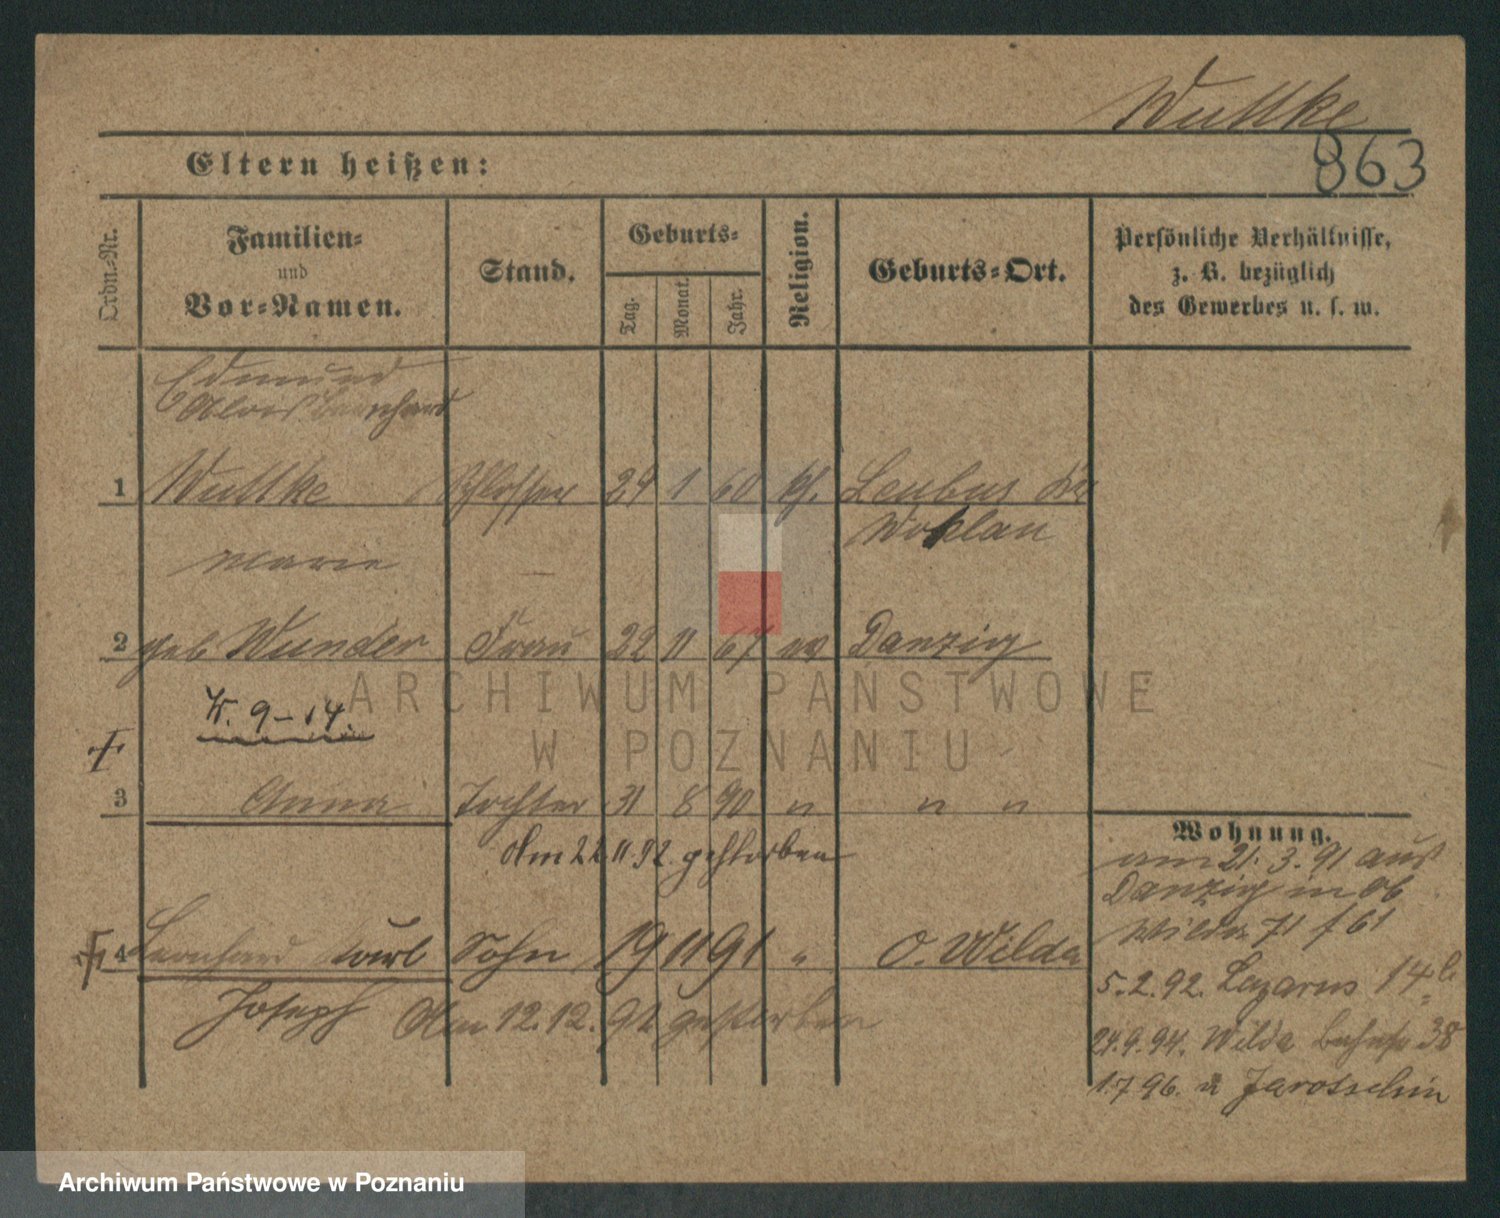 Wuttke
863
Eltern heißen:
Ordn.-Nr.
Familien-
und
Vor-Namen.
Stand.
Geburts-
Tag.
Monat.
Jahr.
Religion.
Geburts-Ort.
Persönliche Verhältnisse,
z. B. bezüglich
des Gewerbes u. s. w.
Edmund
Alois Bernhard
1 Wuttke Schlosser 24 1 60 kf. Leubus Kr
Wohlau
Marie
2 geb Wunder Frau 22 11 67 ev Danzig
K. 9-14.
3 Anna Tochter 31 8 90 " " "
Am 22.11.92 gestorben
4 Bernhard Karl Sohn 19 11 91 " O. Wilda
Joseph Am 12.12.92 gestorben
Wohnung.
am 21.3.91 aus
Danzig in Ob
Wilda 71 f 61
5.2.92. Lazarus 14 b
24.9.94. Wilda 38
1.7 96. n Jarotschin
ARCHIWUM PAŃSTWOWE
W POZNANIU
Archiwum Państwowe w Poznaniu